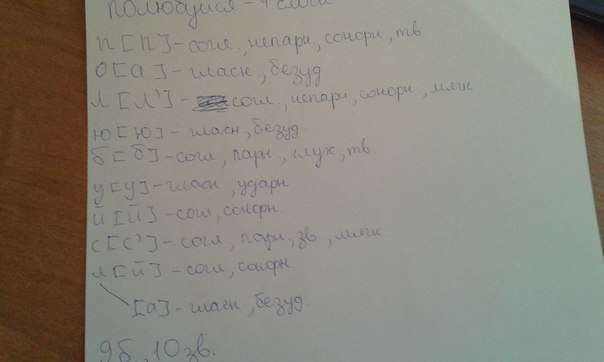 полюбуйся - 4 слога
п [п] - согл, непарн, сонорн, тв
о [а] - гласн, безуд
л [л'] - согл, непарн, сонорн, мягк
ю [ю] - гласн, безуд.
б [б] - согл, парн, глух, тв
у [у] - гласн, ударн
й [й] - согл, сонорн
с [с'] - согл, парн, зв, мягк
я [й] - согл, сонорн
[а] - гласн, безуд.
9б, 10зв.